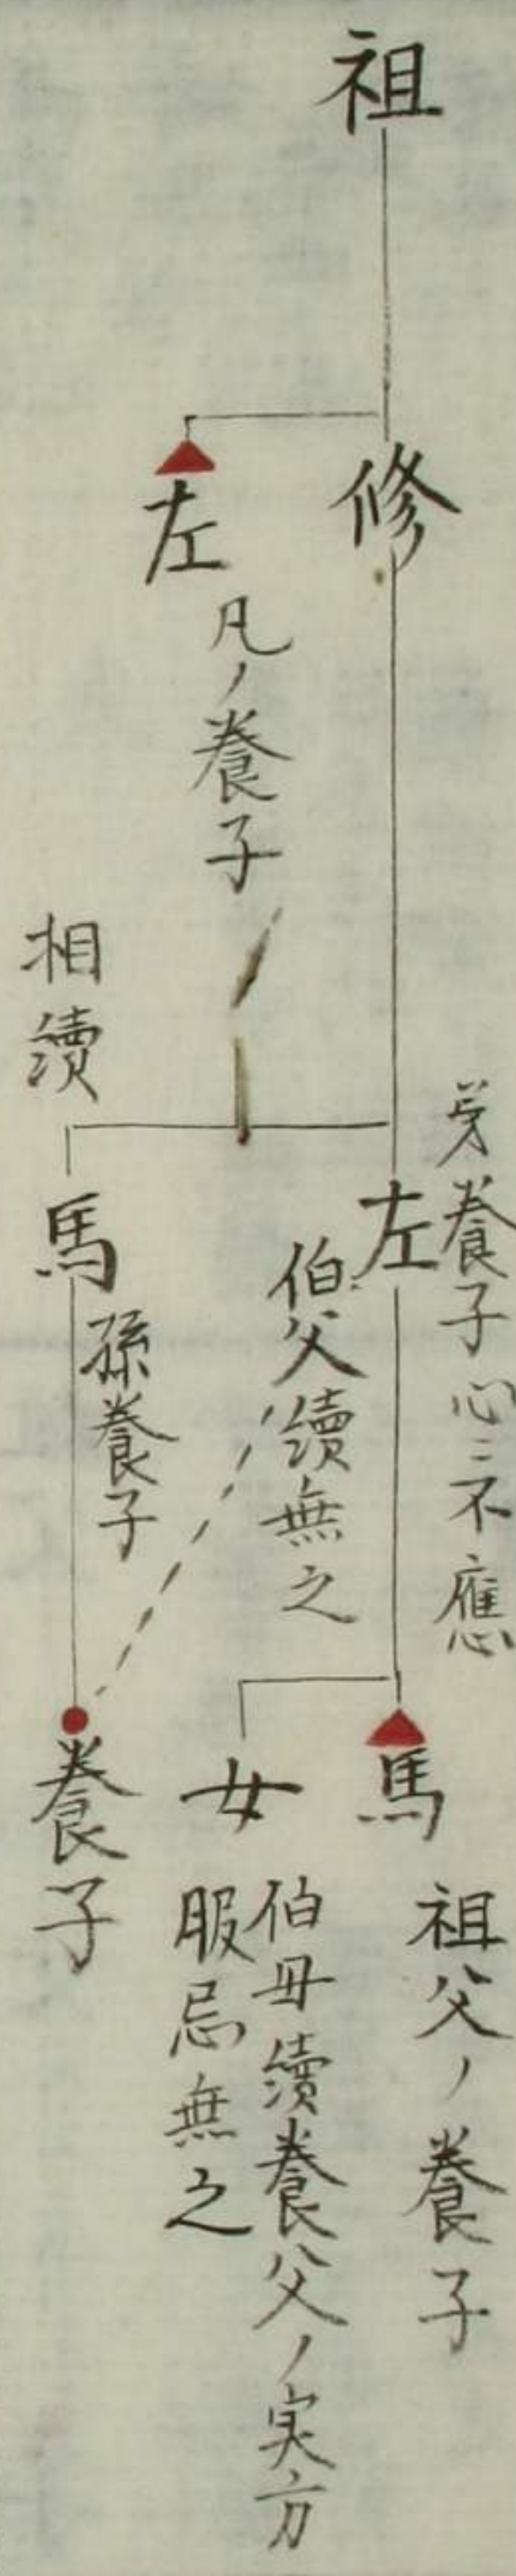 祖
修
左
凡ノ養子
養子心ニ不應
左
伯父續無之
相續
馬
孫養子
馬
祖父ノ養子
女
伯母續養父ノ実方
服忌無之
養子